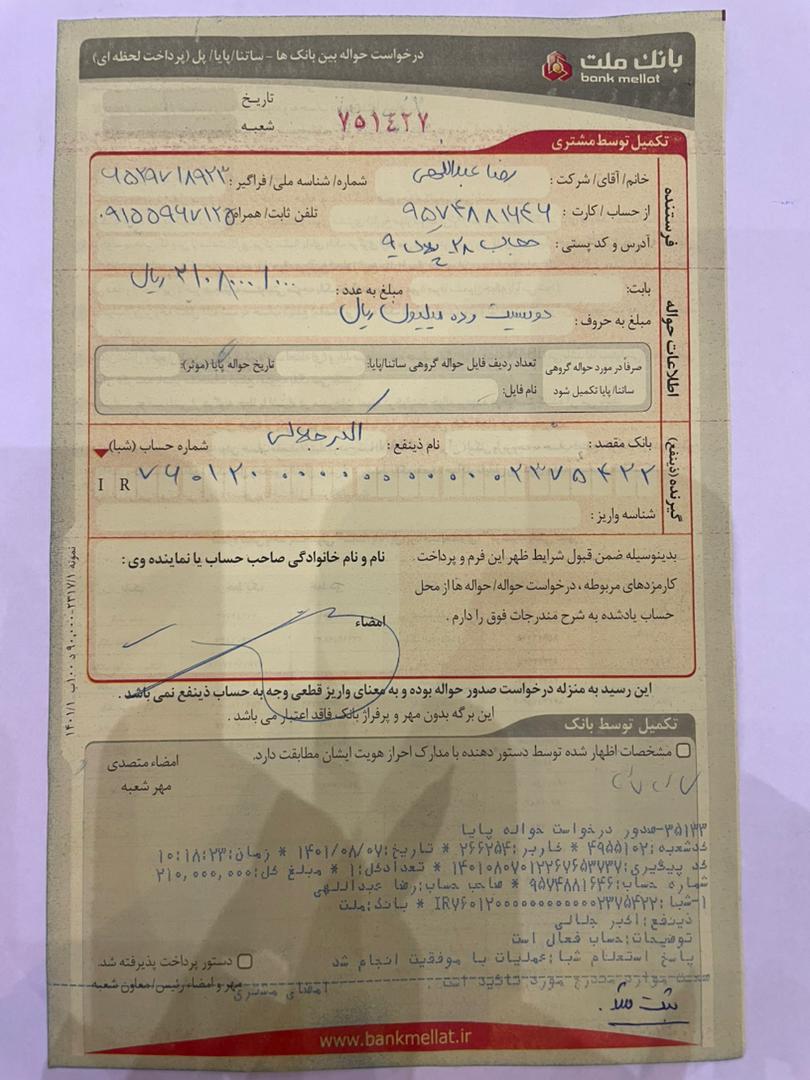 بانک ملت
bank mellat
درخواست حواله بین بانک ها - ساتنا/پایا/ پل (پرداخت لحظه ای)
تاریخ
شعبه
۷۵۱۴۲۷
تکمیل توسط مشتری
فرستنده
خانم/ آقای/ شرکت : رضا عبداللهی شماره/ شناسه ملی/ فراگیر :
از حساب/ کارت : ۹۵۷۴۸۸۱۶۴۶ تلفن ثابت/ همراه: ۰۹۱۵۵۹۶۷۱۲۵
آدرس و کد پستی : حجاب ۲۸ پلاک ۹
اطلاعات حواله
بابت: مبلغ به عدد : ۲۱۰/۰۰۰/۰۰۰ ریال
مبلغ به حروف : دویست و ده میلیون ریال
صرفاً در مورد حواله گروهی ساتنا/ پایا تکمیل شود
تعداد ردیف فایل حواله گروهی ساتنا/پایا: تاریخ حواله پایا (موثر):
نام فایل:
گیرنده (ذینفع)
بانک مقصد : نام ذینفع : اکبر جلالی شماره حساب (شبا)
IR ۷۶۰۱۲۰۰۰۰۰۰۰۰۰۰۰۰۰۲۳۷۵۴۲۲
شناسه واریز :
بدینوسیله ضمن قبول شرایط ظهر این فرم و پرداخت
کارمزدهای مربوطه ، درخواست حواله/ حواله ها از محل
حساب یادشده به شرح مندرجات فوق را دارم .
نام و نام خانوادگی صاحب حساب یا نماینده وی :
امضاء
این رسید به منزله درخواست صدور حواله بوده و به معنای واریز قطعی وجه به حساب ذینفع نمی باشد .
این برگه بدون مهر و پرفراژ بانک فاقد اعتبار می باشد .
تکمیل توسط بانک
مشخصات اظهار شده توسط دستور دهنده با مدارک احراز هویت ایشان مطابقت دارد.
امضاء متصدی
مهر شعبه
۳۵۱۳۳-صدور درخواست حواله پایا
کدشعبه:۴۹۵۵۱۰۲ * کاربر:۲۶۶۲۵۴ * تاریخ:۱۴۰۱/۰۸/۰۷ * زمان:۱۰:۱۸:۲۳
کد پیگیری:۱۴۰۱۰۸۰۷۰۱۲۲۶۷۶۵۳۷۳۷ * تعدادکل:۱ * مبلغ کل:۲۱۰,۰۰۰,۰۰۰
شماره حساب:۹۵۷۴۸۸۱۶۴۶ * صاحب حساب:رضا عبداللهی
۱-شبا:IR۷۶۰۱۲۰۰۰۰۰۰۰۰۰۰۰۰۰۲۳۷۵۴۲۲ * بانک:ملت
ذینفع:اکبر جلالی
توضیحات:حساب فعال است
پاسخ استعلام شبا:عملیات با موفقیت انجام شد
صحت موارد مندرج مورد تائید است . امضای مشتری
دستور پرداخت پذیرفته شد.
مهر و امضاء رئیس/ معاون شعبه
ثبت شد.
www.bankmellat.ir